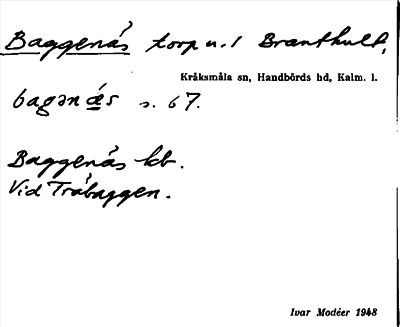 Baggenås torp u. l Branthult,
Kråksmåla sn, Handbörds hd, Kalm. l.
bagənǽs s. 67.
Baggenås kb.
Vid Tråbaggen.
Ivar Modéer 1948